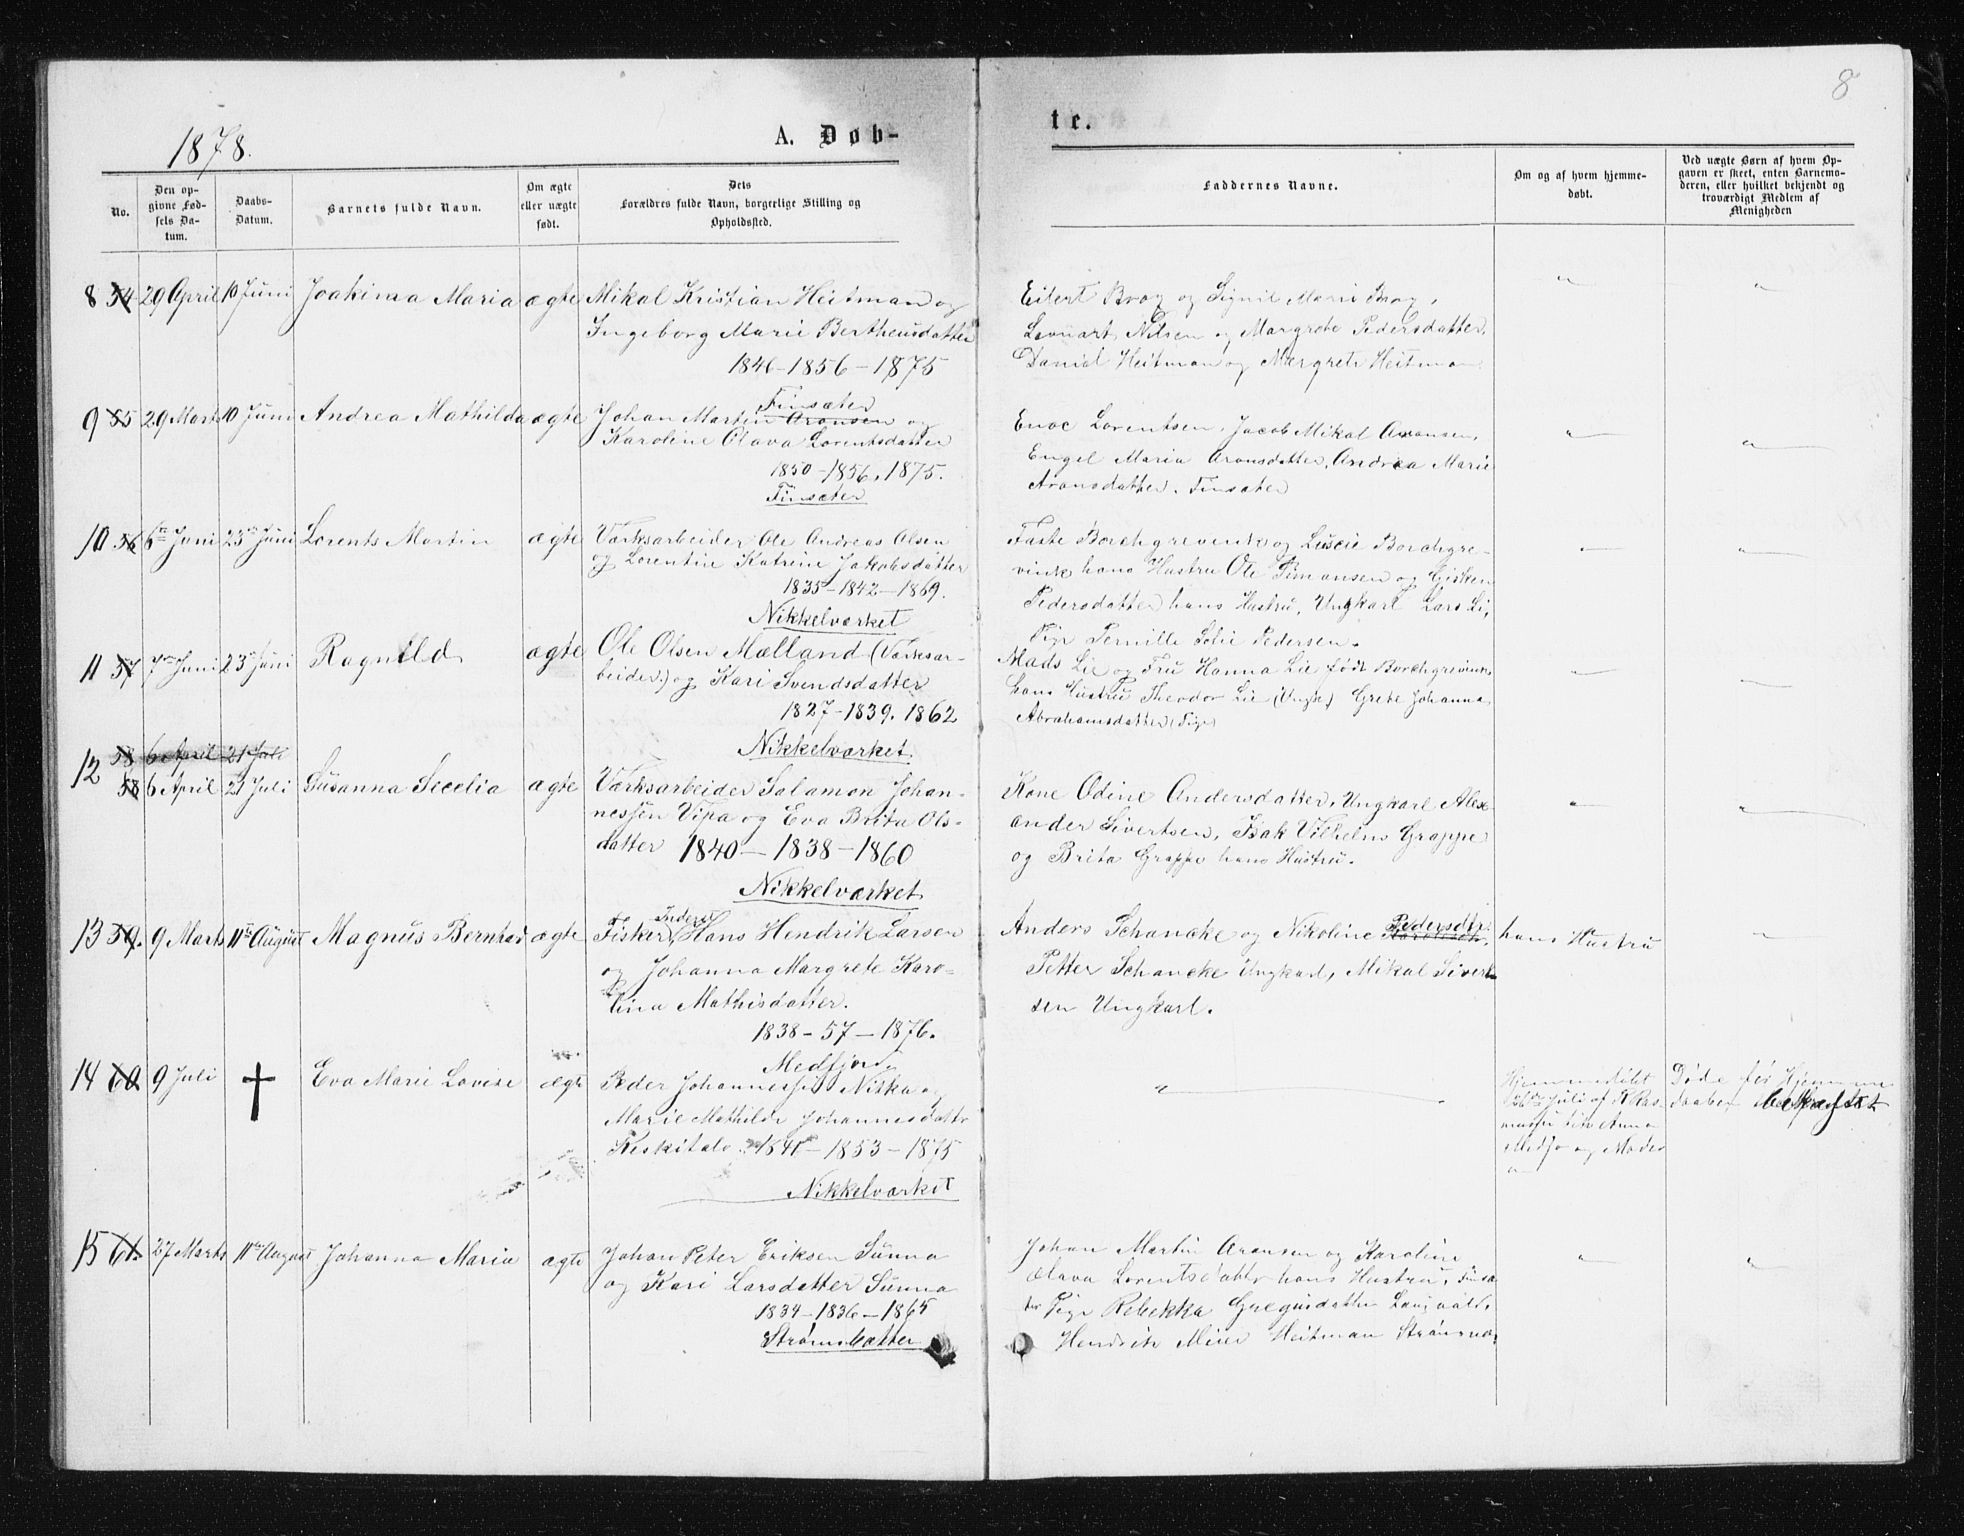 8
1878.
A. Døb-
te.
No.
Den op-
givne Fød-
sels Da-
tum.
Daabs-
Datum.
Barnets fulde Navn.
Om ægte
eller uægte
født.
Dets
Forældres fulde Navn, borgerlige Stilling og
Opholdssted.
Faddernes Navne.
Om og af hvem hjemme-
døbt.
Ved uægte Børn af hvem Op-
gaven er skeet, enten Barnemo-
deren, eller hvilket bekjendt og
troværdigt Medlem af
Menigheden
8 54 29 April 10 Juni Joakima Maria ægte Mikal Kristian Heitman og
Ingeborg Marie Bertheusdatter
1846-1856-1875
Eilert Brox og Signil Marie Brox,
Lenart Nilsen og Margrete Pedersdatter.
Daniel Heitman og Margrete Heitman
9 55 29 Marts 10 Juni Andrea Mathilda ægte Johan Martin Aronsen og
Finsæter
Karoline Olava Lorentsdatter
1850-1856, 1875.
Finsæter
Enoc Lorentsen, Jacob Mikal Aronsen,
Engel Maria Aronsdatter, Andrea Marie
Aronsdatter. Finsæter
10 56 6te Juni 23de Juni Lorents Martin ægte Værksarbeider Ole Andreas Olsen
og Lorentine Katrine Jakobsdatter
1835-1842-1869.
Nikkelværket
Faste Borchgrevink og Borchgre-
vink hans Hustru Ole Simonsen og
Pedersdatter hans Hustru, Ungkarl Lars Li,
Pige Pernille Sofie Pedersen.
11 57 7de Juni 23de Juni Ragnild ægte Ole Olsen Mælland (Værksar-
beider) og Kari Svendsdatter
1827-1839. 1862
Nikkelværket.
Mads Lie og Fru Hanna Lie født Borchgrevink
hans Hustru Theodor Lie (Ungk.) Grete Johanna
Abrahamsdatter (Pige)
12 58 6 April 21 Juli
58 6 April 21 Juli Susanna Secelia ægte Værksarbeider Salamon Johan-
nessen Vipa og Eva Brita Ols-
datter 1840-1838-1860
Nikkelværket
Kone Odine Andersdatter, Ungkarl Alex-
ander Sivertsen, Isak Vilhelm Grappe
og Brita Grappe hans Hustru.
13 59. 9 Marts 11te August Magnus Bernhard ægte Fisker, Hans Hendrik Larsen
Inderst
og Johanna Margrete Karo-
lina Mathisdatter.
1838-57-1876.
Medfjord
Anders Schancke og Nikoline Pedersdtr. hans Hustru
Petter Schancke Ungkarl, Mikal Sivert-
sen Ungkarl.
14 60 9 Juli † Eva Marie Lovise ægte Peder Johannessen Niska og
Marie Mathilde Johannesdatter
Keskitalo 1841-1853-1875
Nikkelværket
Hjemmedøbt
26de Juli af K Ras-
mussen Anna
og Moder
Døde før Hjemme
daaben bekræftet
15 61. 27 Marts 11te August Johanna Maria ægte Johan Peter Eriksen Sunna
og Kari Larsdatter Sunna
1834-1836-1865
Strømsbotten
Johan Martin Aronsen og Karoline
Olava Lorentsdatter hans Hustru, Finsæ
ter Pige Rebekka Gregusdatter
Hendrik Meier Heitman